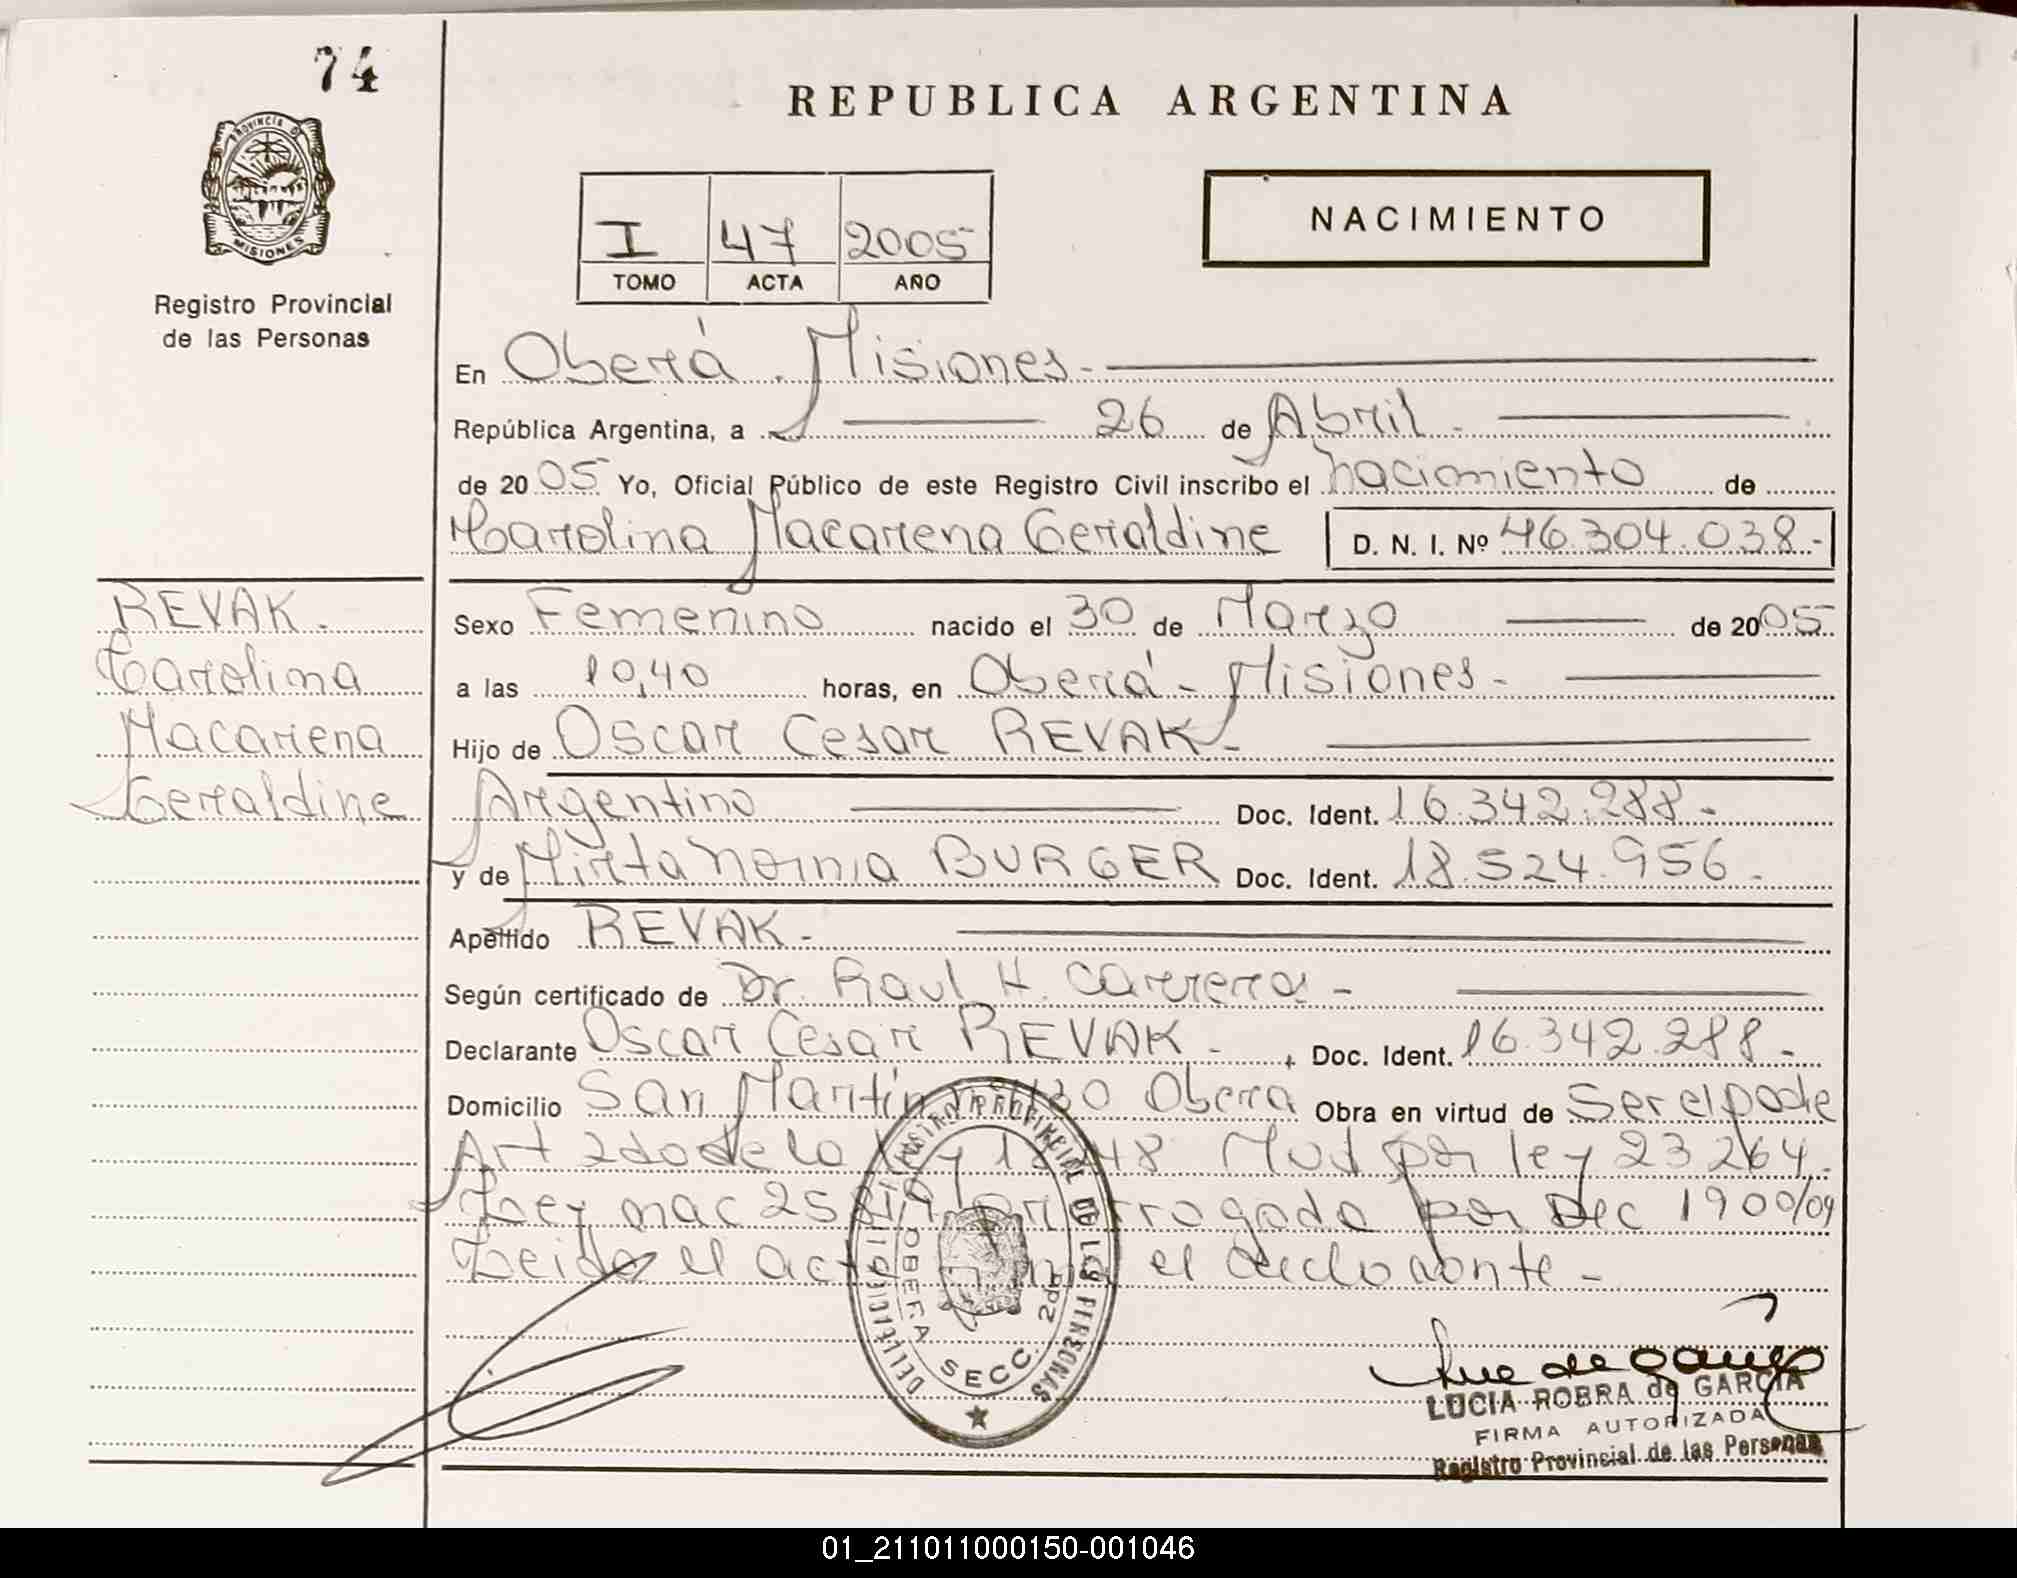 74
PROVINCIA DE
MISIONES
Registro Provincial
de las Personas
REPUBLICA ARGENTINA
I 47 2005
TOMO ACTA AÑO
NACIMIENTO
En Oberá, Misiones-
República Argentina, a 26 de Abril -
de 2005 Yo, Oficial Público de este Registro Civil inscribo el nacimiento de
Carolina Macarena Geraldine D. N. I. Nº 46.304.038-
REVAK.
Carolina
Macarena
Geraldine
Sexo Femenino nacido el 30 de Marzo de 2005
a las 10,40 horas, en Oberá - Misiones -
Hijo de Oscar Cesar REVAK -
Argentino Doc. Ident. 16.342.288 -
y de Mirta BURGER Doc. Ident. 18.524.956 -
Apellido REVAK -
Según certificado de Dr. Raul H. Carrera -
Declarante Oscar Cesar REVAK - Doc. Ident. 16.342.288 -
Domicilio San Martín Obera Obra en virtud de Ser el padre
Art 2do de la Mod por ley 23264.
Ley nac por Dec 1900/04
Leida el acta el declarante -
REGISTRO PROVINCIAL DE LAS PERSONAS
DELEGACION
OBERA SECC. 2da
LUCIA ROBRA de GARCIA
FIRMA AUTORIZADA
Registro Provincial de las Personas
01_211011000150-001046